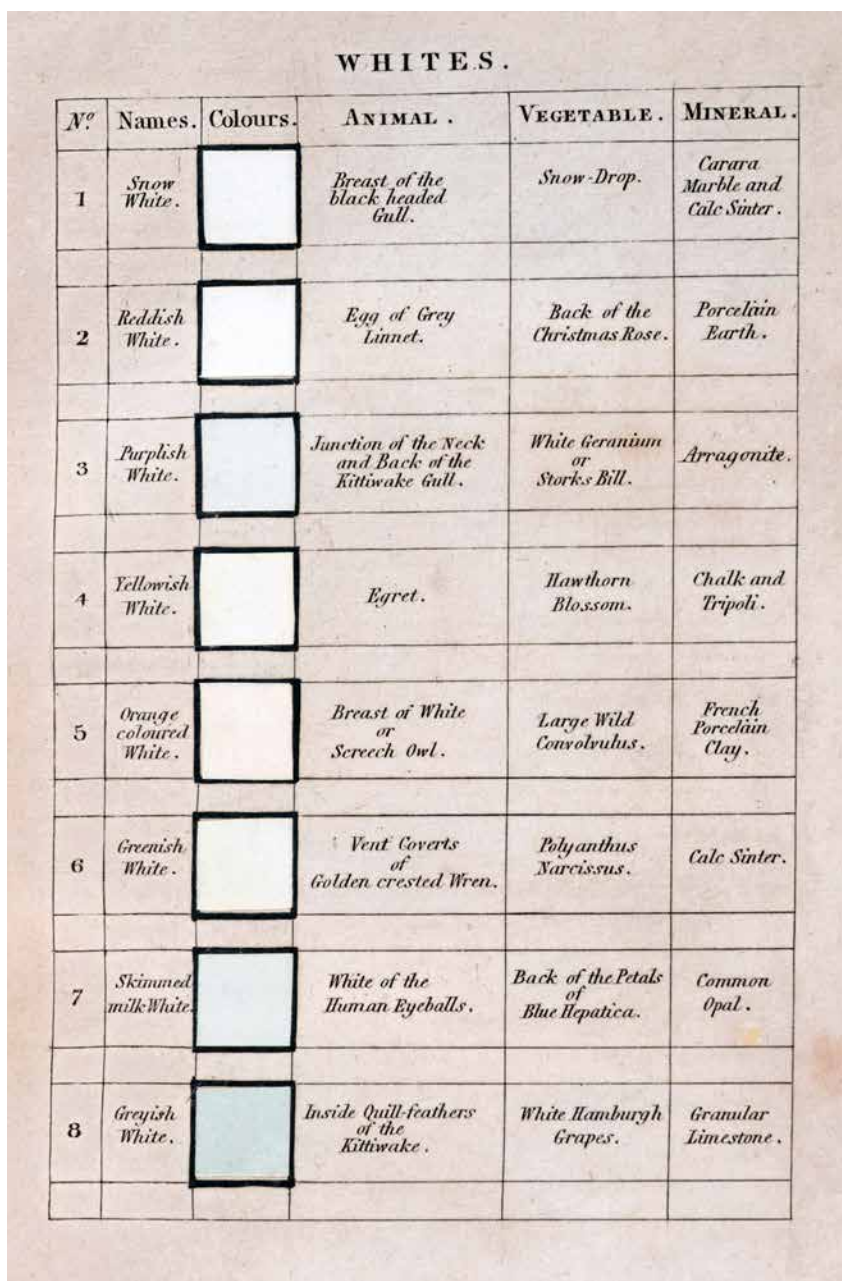 WHITES.
Nº Names. Colours. ANIMAL. VEGETABLE. MINERAL.
1
Snow
White.
Breast of the
black headed
Gull.
Snow-Drop.
Carara
Marble and
Calc Sinter.
2
Reddish
White.
Egg of Grey
Linnet.
Back of the
Christmas Rose.
Porcelain
Earth.
3
Purplish
White.
Junction of the Neck
and Back of the
Kittiwake Gull.
White Geranium
or
Storks Bill.
Arragonite.
4
Yellowish
White.
Egret.
Hawthorn
Blossom.
Chalk and
Tripoli.
5
Orange
coloured
White.
Breast of White
or
Screech Owl.
Large Wild
Convolvulus.
French
Porcelain
Clay.
6
Greenish
White.
Vent Coverts
of
Golden crested Wren.
Polyanthus
Narcissus.
Calc Sinter.
7
Skimmed
milk White.
White of the
Human Eyeballs.
Back of the Petals
of
Blue Hepatica.
Common
Opal.
8
Greyish
White.
Inside Quill-feathers
of the
Kittiwake.
White Hamburgh
Grapes.
Granular
Limestone.